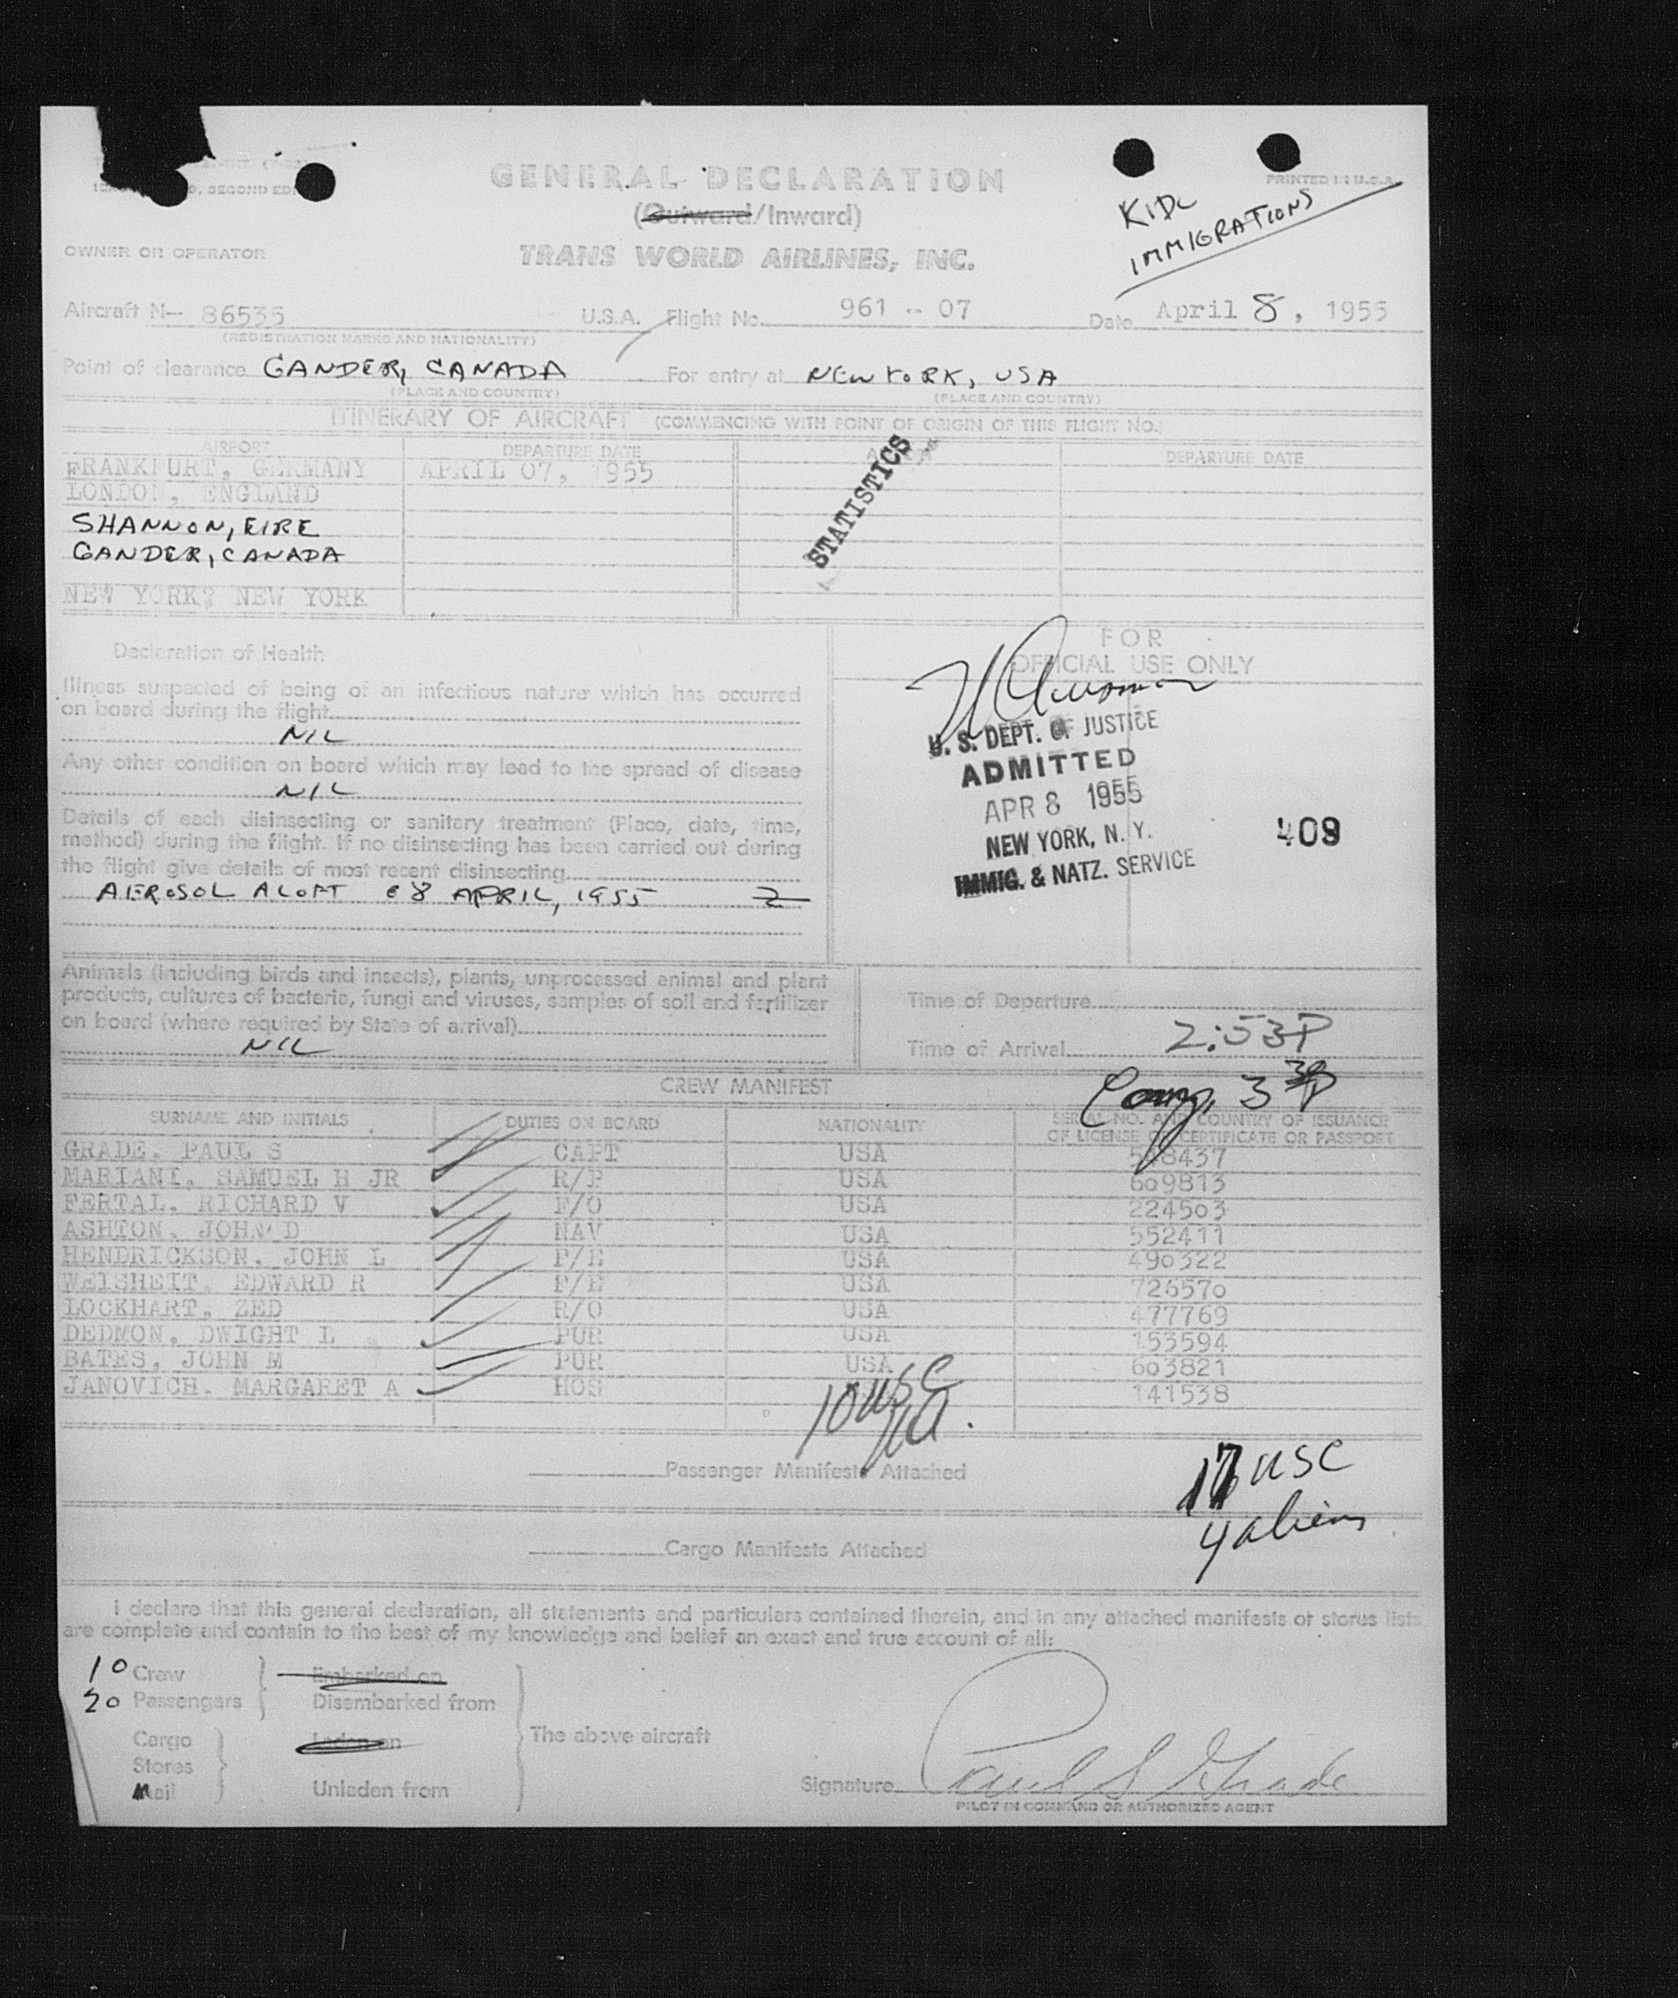 SECOND
GENERAL DECLARATION
PRINTED IN U.S.A.
(Outward/Inward)
KIDL
IMMIGRATIONS
OWNER OR OPERATOR
TRANS WORLD AIRLINES, INC.
Aircraft N— 86535 U.S.A. Flight No. 961 -- 07 Date April 8, 1955
(REGISTRATION MARKS AND NATIONALITY)
Point of clearance GANDER, CANADA For entry at NEW YORK, USA
(PLACE AND COUNTRY) (PLACE AND COUNTRY)
ITINERARY OF AIRCRAFT (COMMENCING WITH POINT OF ORIGIN OF THIS FLIGHT NO.)
AIRPORT DEPARTURE DATE DEPARTURE DATE
FRANKFURT, GERMANY APRIL 07, 1955
LONDON, ENGLAND
STATISTICS
SHANNON, EIRE
GANDER, CANADA
NEW YORK, NEW YORK
FOR
OFFICIAL USE ONLY
Declaration of Health
Illness suspected of being of an infectious nature which has occurred
on board during the flight
NIL
Any other condition on board which may lead to the spread of disease
NIL
Details of each disinsecting or sanitary treatment (Place, date, time,
method) during the flight. If no disinsecting has been carried out during
the flight give details of most recent disinsecting
AEROSOL ALOFT 08 APRIL, 1955 Z
U. S. DEPT. OF JUSTICE
ADMITTED
APR 8 1955
NEW YORK, N. Y.
IMMIG. & NATZ. SERVICE
409
Animals (including birds and insects), plants, unprocessed animal and plant
products, cultures of bacteria, fungi and viruses, samples of soil and fertilizer
on board (where required by State of arrival)
NIL
Time of Departure
Time of Arrival 2:53P
3 30P
CREW MANIFEST
SURNAME AND INITIALS DUTIES ON BOARD NATIONALITY SERIAL NO. AND COUNTRY OF ISSUANCE
OF LICENSE OR CERTIFICATE OR PASSPORT
GRADE, PAUL S CAPT USA
MARIANI, SAMUEL H JR R/P USA 609813
FERTAL, RICHARD V F/O USA 224503
ASHTON, JOHN D NAV USA 552411
HENDRICKSON, JOHN L F/E USA 490322
WEISHEIT, EDWARD R F/E USA 726570
LOCKHART, ZED R/O USA 477769
DEDMON, DWIGHT L PUR USA 153594
BATES, JOHN M PUR USA 603821
JANOVICH, MARGARET A HOS 141538
10 USC
Passenger Manifests Attached
17 USC
4 aliens
Cargo Manifests Attached
I declare that this general declaration, all statements and particulars contained therein, and in any attached manifests or stores lists
are complete and contain to the best of my knowledge and belief an exact and true account of all:
10 Crew Embarked on
20 Passengers Disembarked from
Cargo Laden on The above aircraft
Stores
Mail Unladen from
Signature Paul S Grade
PILOT IN COMMAND OR AUTHORIZED AGENT